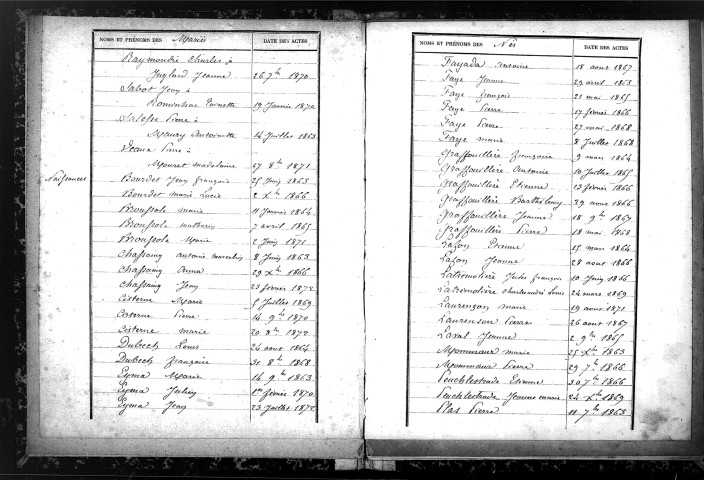 NOMS ET PRÉNOMS DES Mariés DATE DES ACTES
Raymondie Charles à
Juglard Jeanne 26 7bre 1870
Sabot Jean à
19 Janvier 1870
Pierre à
Maury Antoinette 14 Juillet 1863
Pierre à
Mouret madelaine 27 8bre 1871
Naissances
Bourdet Jean françois 25 Juin 1863
Bourdet marie Lucie 2 Xbre 1866
Broussole marie 11 Janvier 1864
Broussole mathurin 7 avril 1865
Broussole Marie 2 Juin 1871
Chassaing antoine marcelin 8 Juin 1863
Chassaing Anna 29 Xbre 1866
Chassaing Jean 23 février 1872
Cisterne Marie 5 Juillet 1869
Cisterne Pierre 14 9bre 1870
Cisterne marie 20 8bre 1872
Dubech Louis 24 aout 1864
Dubech françoise 31 8bre 1868
Eyma Marie 14 9bre 1863
Eyma Julien 1er février 1870
Eyma Jean 23 Juillet 1872
NOMS ET PRÉNOMS DES Nés DATE DES ACTES
Fayada Antoine 18 aout 1867
Faye Jeanne 29 avril 1863
Faye françois 21 mai 1865
Faye Pierre 17 février 1866
Faye Pierre 27 mai 1868
Faye marie 8 Juillet 1868
Graffouillère françoise 9 mars 1864
Graffouillère Antonie 10 Juillet 1865
Graffouillère Etienne 13 février 1866
Graffouillère Barthélemy 29 aout 1866
Graffouillère Jeanne 18 9bre 1867
Graffouillère Pierre 18 mai 1868
Lafon Etienne 25 mars 1864
Lafon Jeanne 28 aout 1866
Latromolière Jules françois 10 Juin 1866
Latromolière Louis 24 mars 1869
Laurençon marie 19 aout 1871
Laurenson Pierre 26 aout 1867
Laval Jeanne 2 9bre 1865
Mommaux marie 25 Xbre 1863
Mommaux Pierre 29 7bre 1866
Peuchlestrade Etienne 30 7bre 1866
Peuchlestrade Jeanne marie 24 Xbre 1869
Plas Pierre 11 7bre 1863